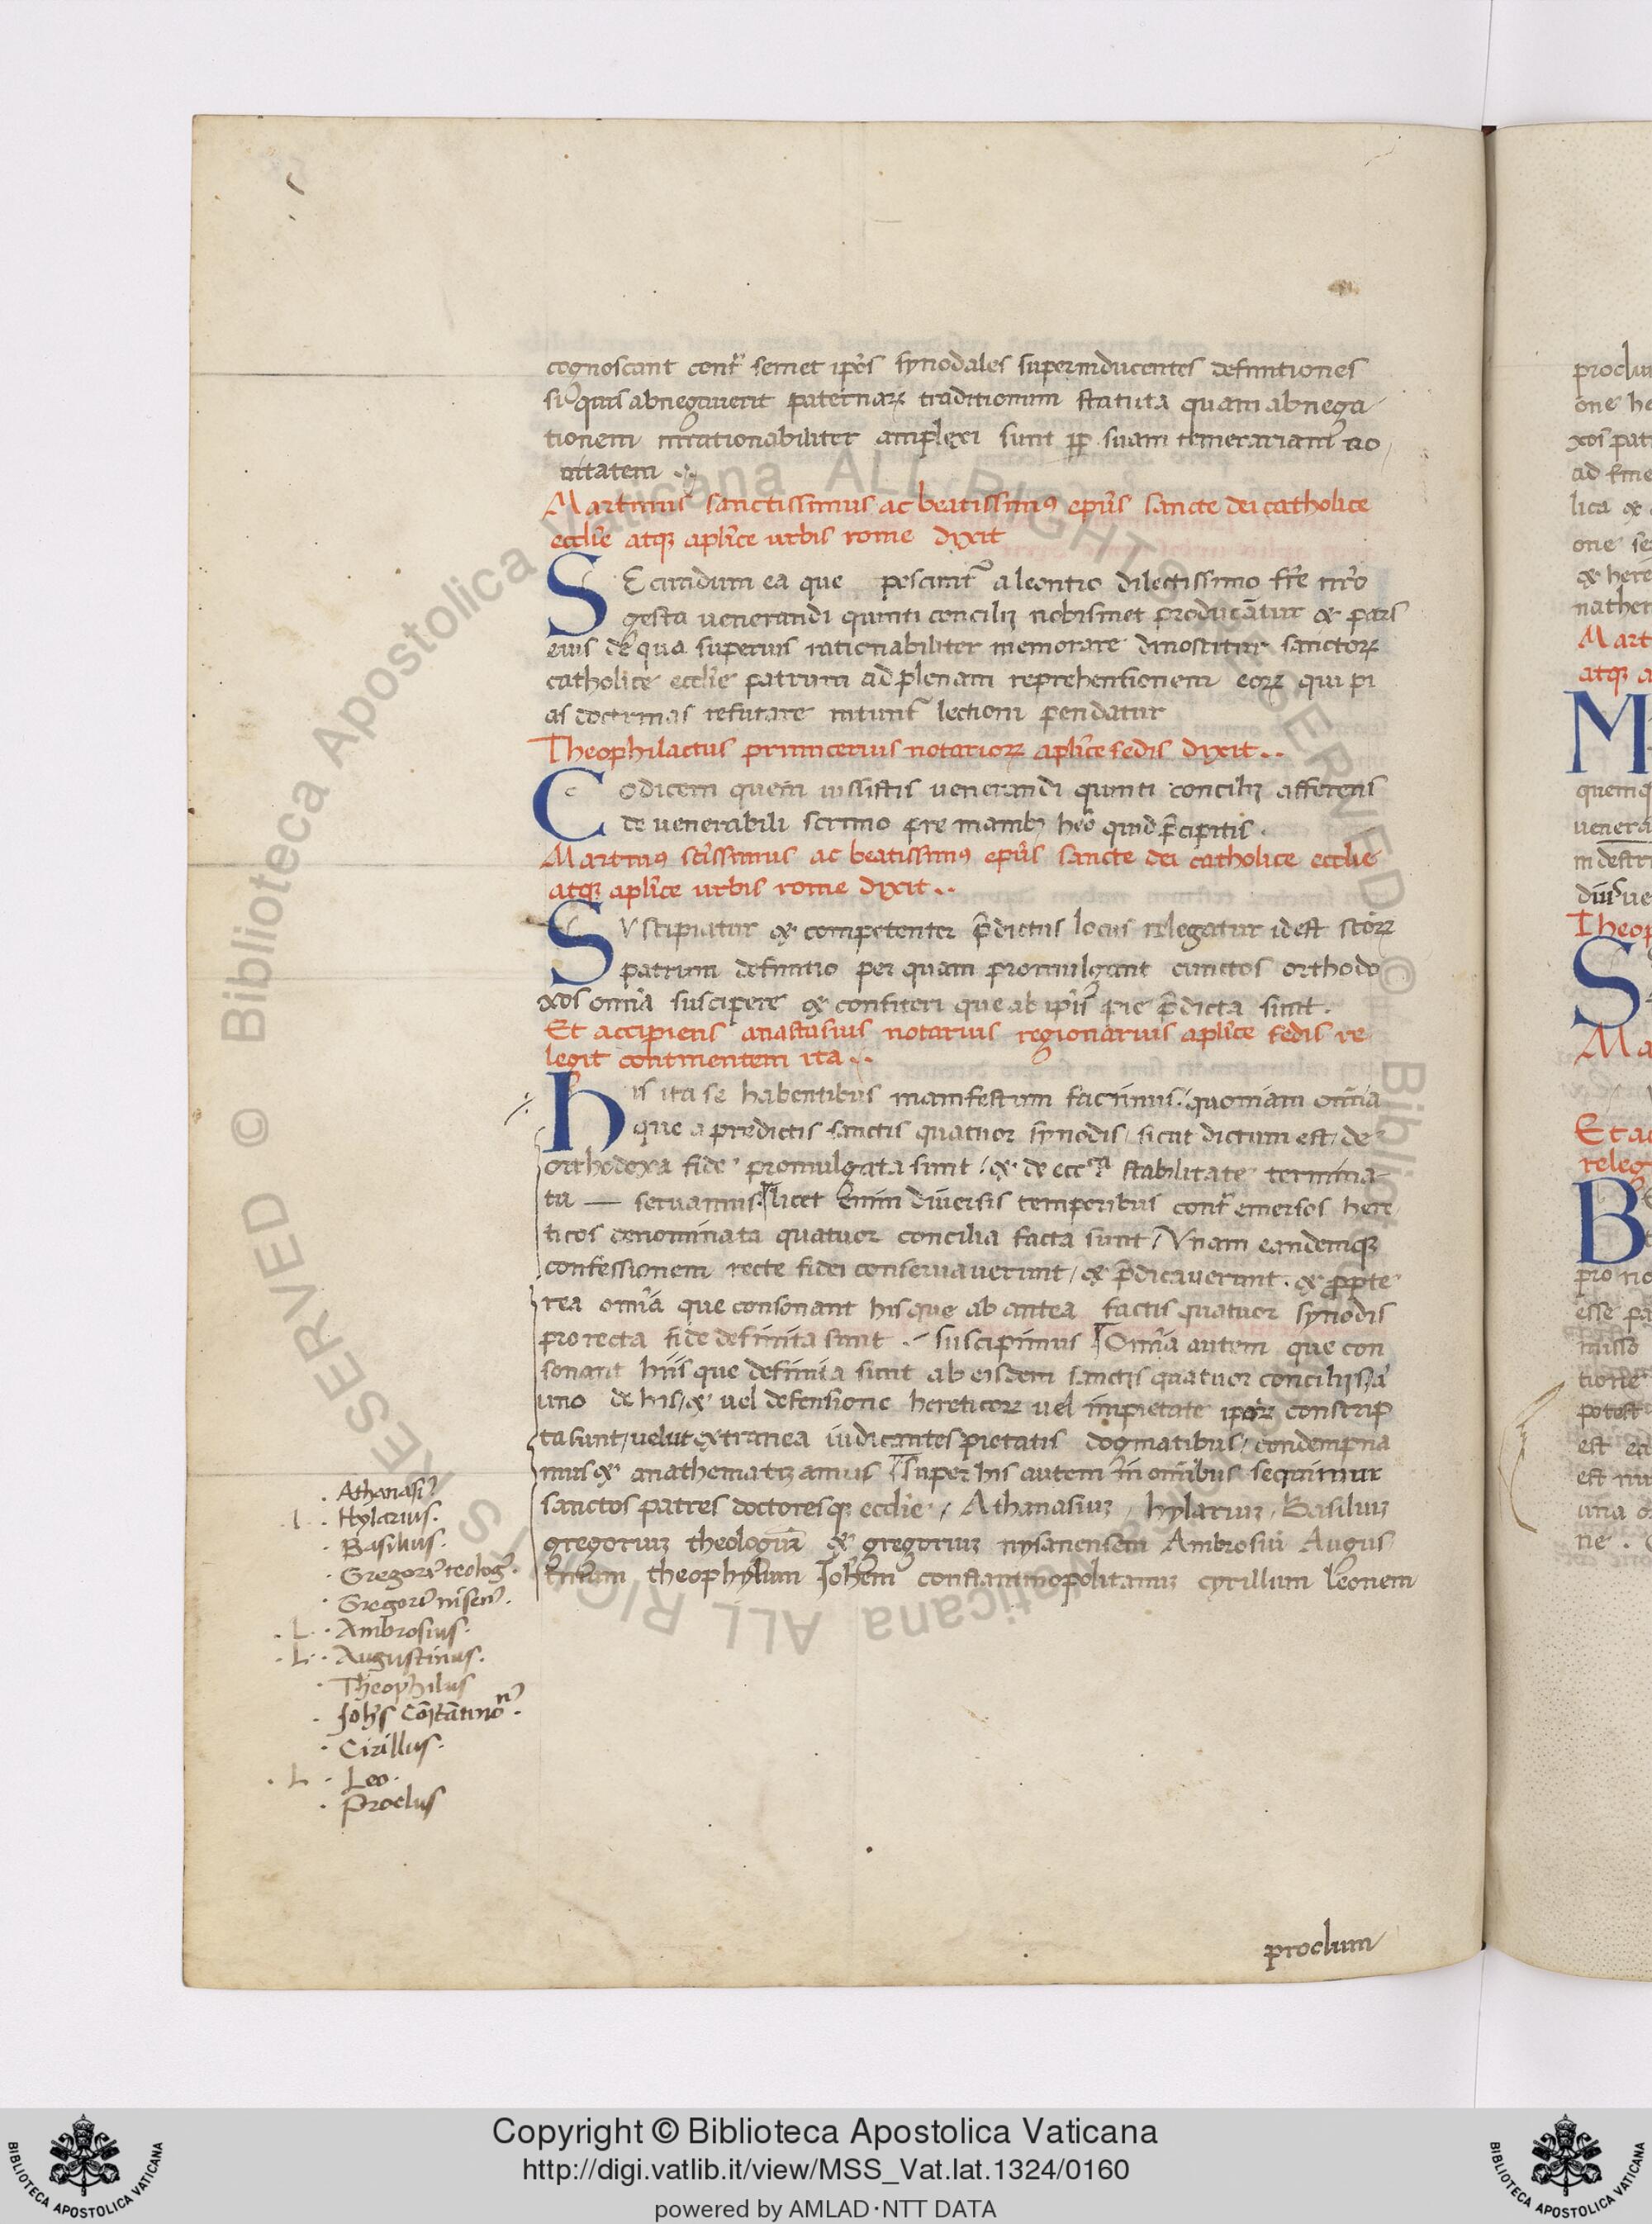 cognoscant contr̃ semet ip̃os synodales superinducentes definitiones
siqͥuis abnegauerit paternaꝝ traditionum statuta quam abnega
tionem irrationabiliter amplexi sunt ꝓp̃ suam temerariam no
uitatem
Martinus sanctissimus ac beatissimꝰ ep̃us sancte dei catholice
eccl̃ie atqꝫ apl̃ice urbis rome dixit
SEcundum ea que poscunt᷑ a leontio dilectissimo fr̃e nr̃o
gesta uenerandi quinti concilij nobismet producãtur & pars
eius de qua superius rationabiliter memorare dinoscitur sanctoꝝ
catholice eccl̃ie patrum ad plenam reprehensionem eoꝝ qui pi
as doctrinas refutare nitunt᷑ lectioni pendatur
Theophilactus primicerius notarioꝝ apl̃ice sedis dixit..
Codicem quem iussistis uenerandi quinti concilij afferens
de uenerabili scrinio pre manibꝫ heõ quid p̃cipitis.
Martinꝰ sc̃issimus ac beatissimꝰ ep̃us sancte dei catholice eccl̃ie
atqꝫ apl̃ice urbis rome dixit..
SVscipiatur & competenter p̃dictus locus relegatur id est sc̃oꝝ
patrum definitio per quam promulgant cunctos orthodo
xos om̃ia suscipere & confiteri que ab ip̃is pie p̃dicta sunt.
Et accipiens anastasius notarius regionarius apl̃ice sedis re
legit continentem ita..
his ita se habentibus manifestum facimus. quoniam om̃ia
que a predictis sanctis quatuor synodis / sicut dictum est / de
orthodoxa fide promulgata sunt / & de stabilitate termina
ta — seruamus. licet enim diuersis temporibus contr̃ emersos here
ticos denominata quatuor concilia facta sunt / Vnam eandemqꝫ
confessionem recte fidei conseruauerunt / & p̃dicauerunt. & ꝓpte
rea om̃ia que consonant his que ab antea factis quatuor synodis
pro recta fide definita sunt suscipimus ¶ Om̃ia autem que con
sonant hiis que definita sunt ab eisdem sanctis quatuor concilijs
uno de his / & uel defensione hereticoꝝ uel impietate ip̃oꝝ conscrip
ta sunt / uelut extranea iudicantes pietatis dogmatibus / condempna
mus & anathematizamus ¶ super his autem in omibus sequimur
sanctos patres doctoresqꝫ eccl̃ie / Athanasiuꝫ / hylariuꝫ / Basiliuꝫ
gregoriuꝫ theologuꝫ & gregoriuꝫ nysanensem Ambrosiũ Augus
tinum theophylum Joh̃em constantinopolitanuꝫ cyrillum leonem
. Athanasiꝰ
. l . Hylarius.
. Basilius.
. Gregoriꝰ teologꝰ.
. Gregoriꝰ nisenꝰ.
. L . Ambrosius.
. L . Augustinus.
. Theophilus
. Joh̃s Cõstãtinonꝰ.
. Cirillus.
. L . Leo.
. Proclus
proclum
Copyright © Biblioteca Apostolica Vaticana
http://digi.vatlib.it/view/MSS_Vat.lat.1324/0160
powered by AMLAD·NTT DATA
BIBLIOTECA APOSTOLICA VATICANA
BIBLIOTECA APOSTOLICA VATICANA